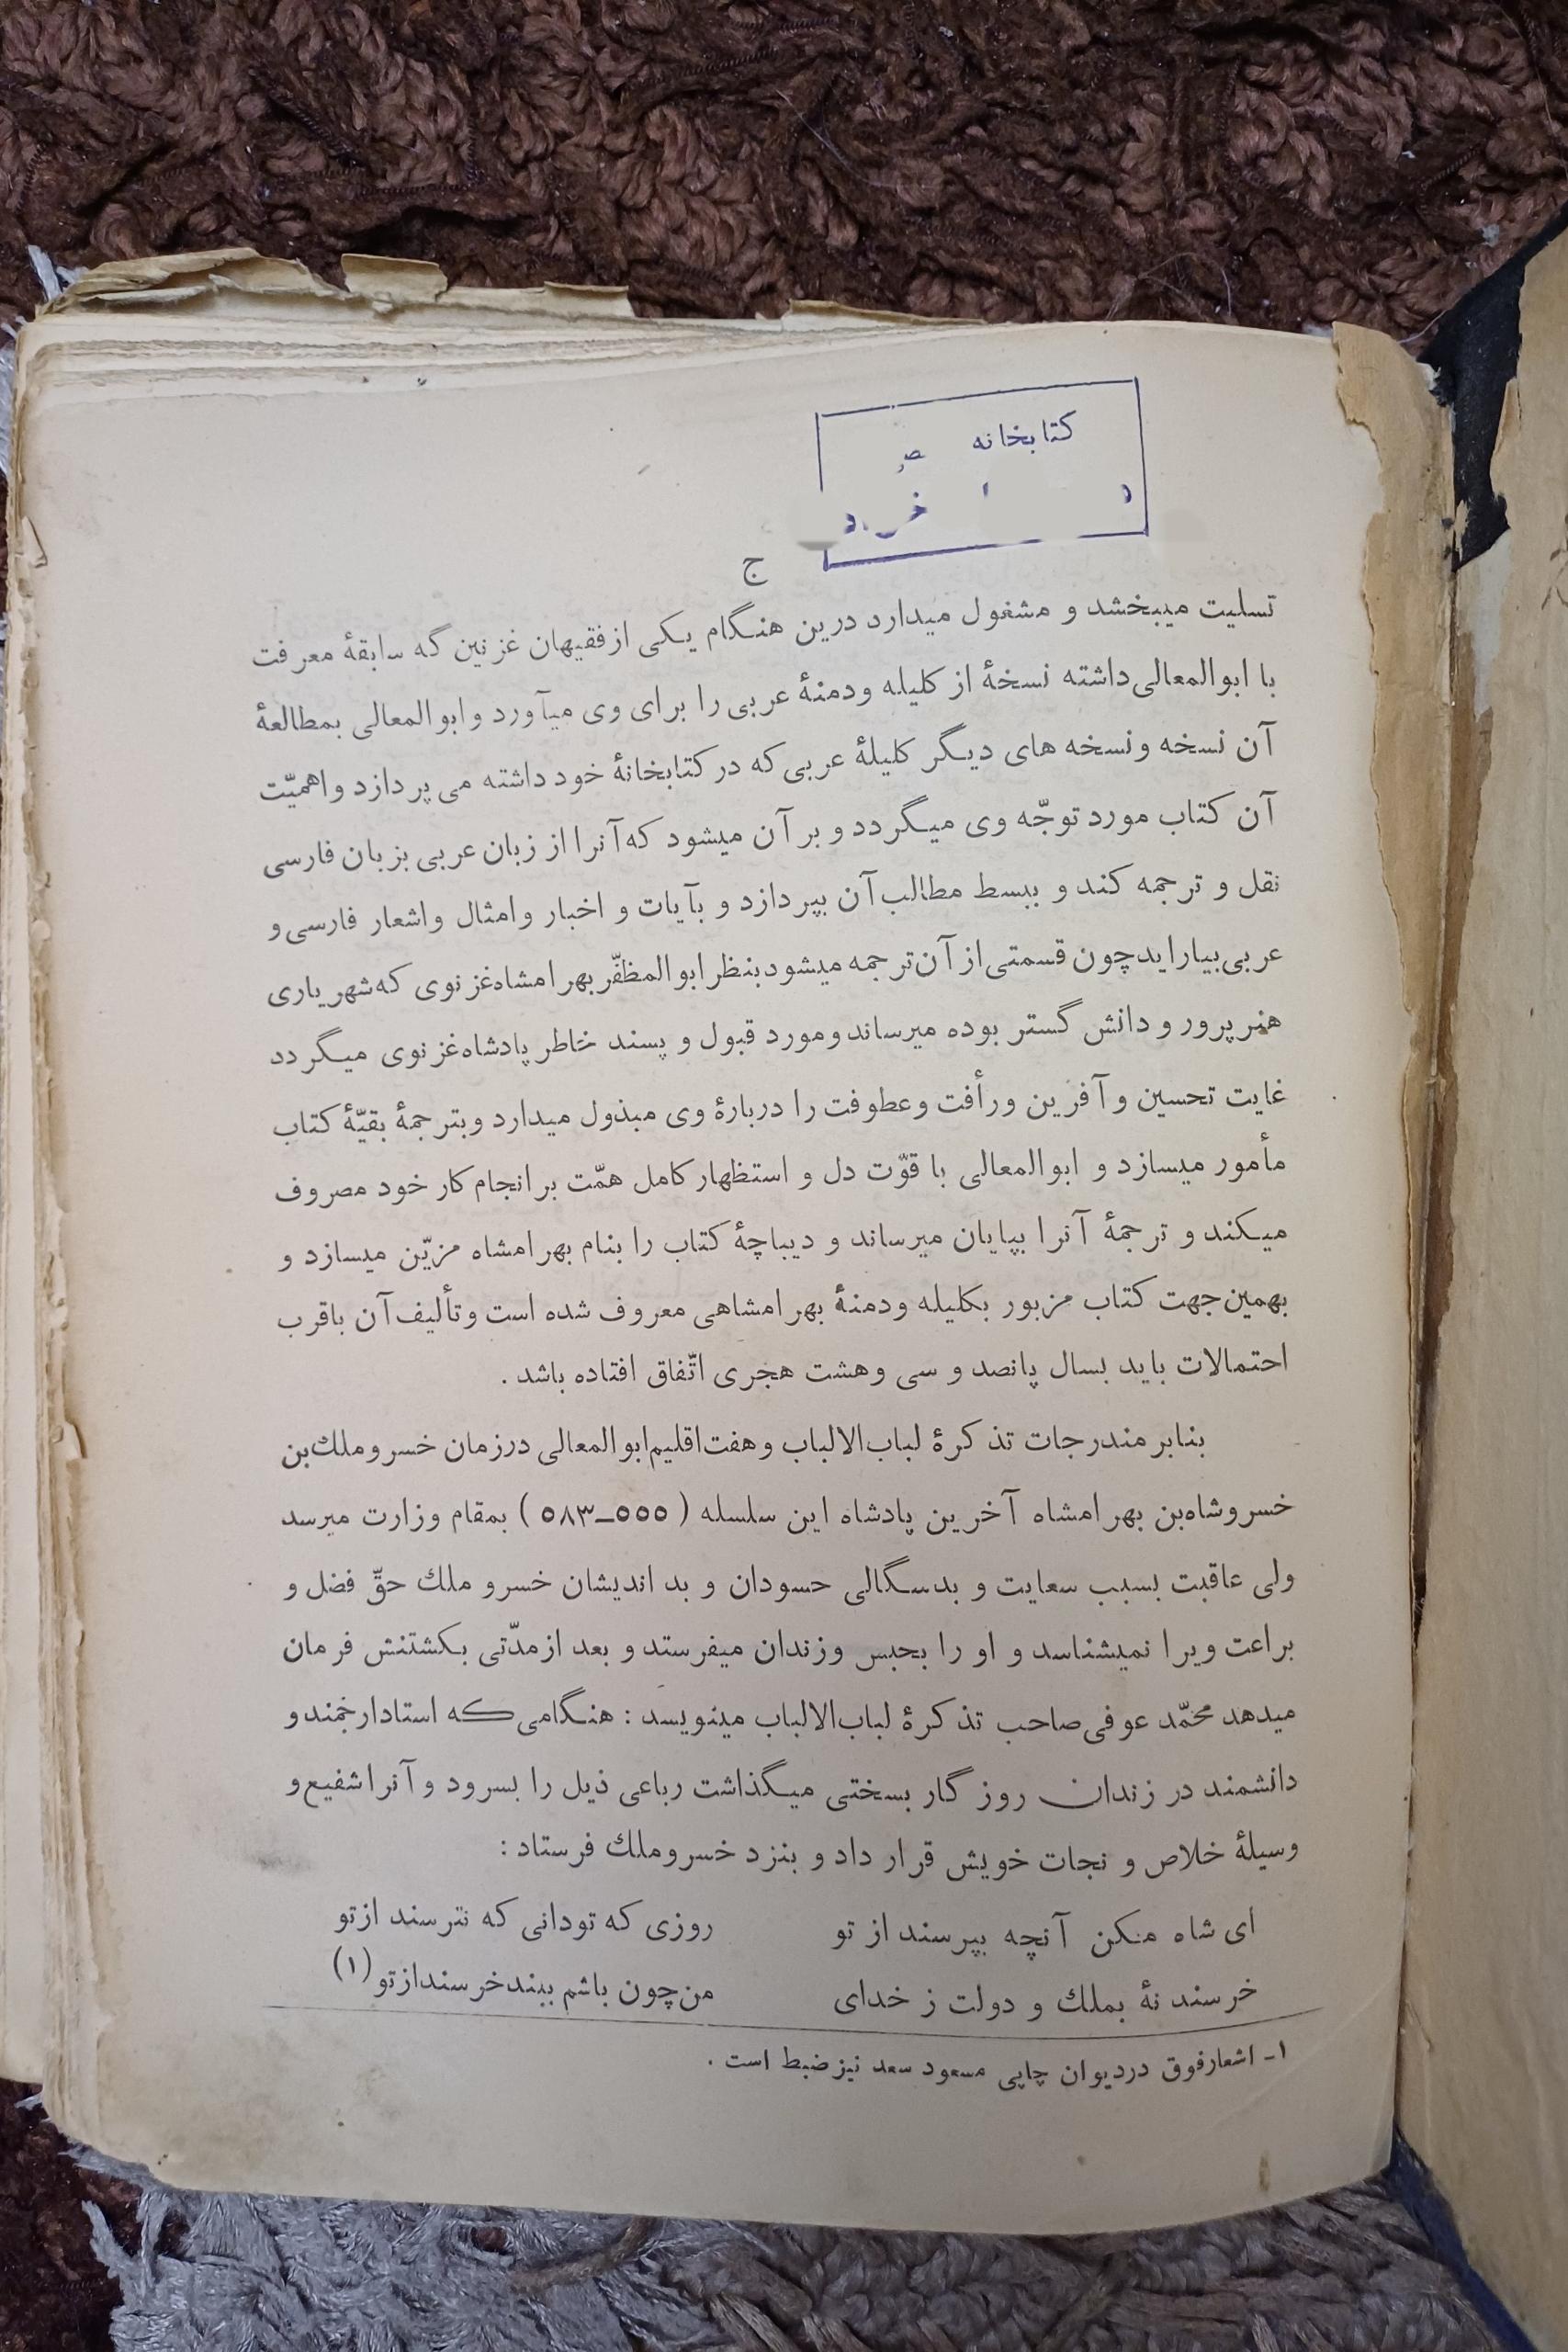 کتابخانه
ج
تسلیت میبخشد و مشغول میدارد درین هنگام یکی از فقیهان غزنین که سابقهٔ معرفت
با ابوالمعالی داشته نسخهٔ از کلیله ودمنهٔ عربی را برای وی میآورد و ابوالمعالی بمطالعهٔ
آن نسخه ونسخه های دیگر کلیلهٔ عربی که در کتابخانهٔ خود داشته می پردازد واهمیّت
آن کتاب مورد توجّه وی میگردد و بر آن میشود که آنرا از زبان عربی بزبان فارسی
نقل و ترجمه کند و ببسط مطالب آن بپردازد و بآیات و اخبار وامثال واشعار فارسی و
عربی بیاراید چون قسمتی از آن ترجمه میشود بنظر ابوالمظفّر بهرامشاه غزنوی که شهریاری
هنرپرور و دانش گستر بوده میرساند ومورد قبول و پسند خاطر پادشاه غزنوی میگردد
غایت تحسین و آفرین ورأفت وعطوفت را دربارهٔ وی مبذول میدارد وبترجمهٔ بقیّهٔ کتاب
مأمور میسازد و ابوالمعالی با قوّت دل و استظهار کامل همّت بر انجام کار خود مصروف
میکند و ترجمهٔ آنرا بپایان میرساند و دیباچهٔ کتاب را بنام بهرامشاه مزیّن میسازد و
بهمین جهت کتاب مزبور بکلیله ودمنهٔ بهرامشاهی معروف شده است وتألیف آن باقرب
احتمالات باید بسال پانصد و سی وهشت هجری اتّفاق افتاده باشد .
بنابر مندرجات تذکرهٔ لباب‌الالباب وهفت‌اقلیم ابوالمعالی درزمان خسروملك‌بن
خسروشاه‌بن بهرامشاه آخرین پادشاه این سلسله ( ۵۵۵ـ۵۸۳ ) بمقام وزارت میرسد
ولی عاقبت بسبب سعایت و بدسگالی حسودان و بد اندیشان خسرو ملك حقّ فضل و
براعت ویرا نمیشناسد و او را بحبس وزندان میفرستد و بعد ازمدّتی بکشتنش فرمان
میدهد محمّد عوفی صاحب تذکرهٔ لباب‌الالباب مینویسد : هنگامی‌که استاد ارجمند و
دانشمند در زندان روزگار بسختی میگذاشت رباعی ذیل را بسرود و آنرا شفیع و
وسیلهٔ خلاص و نجات خویش قرار داد و بنزد خسروملك فرستاد :
ای شاه مکن آنچه بپرسند از تو روزی که تودانی که نترسند ازتو
خرسند نهٔ بملك و دولت ز خدای من‌چون باشم ببند خرسند ازتو (۱)
۱ـ اشعار فوق دردیوان چاپی مسعود سعد نیز ضبط است .